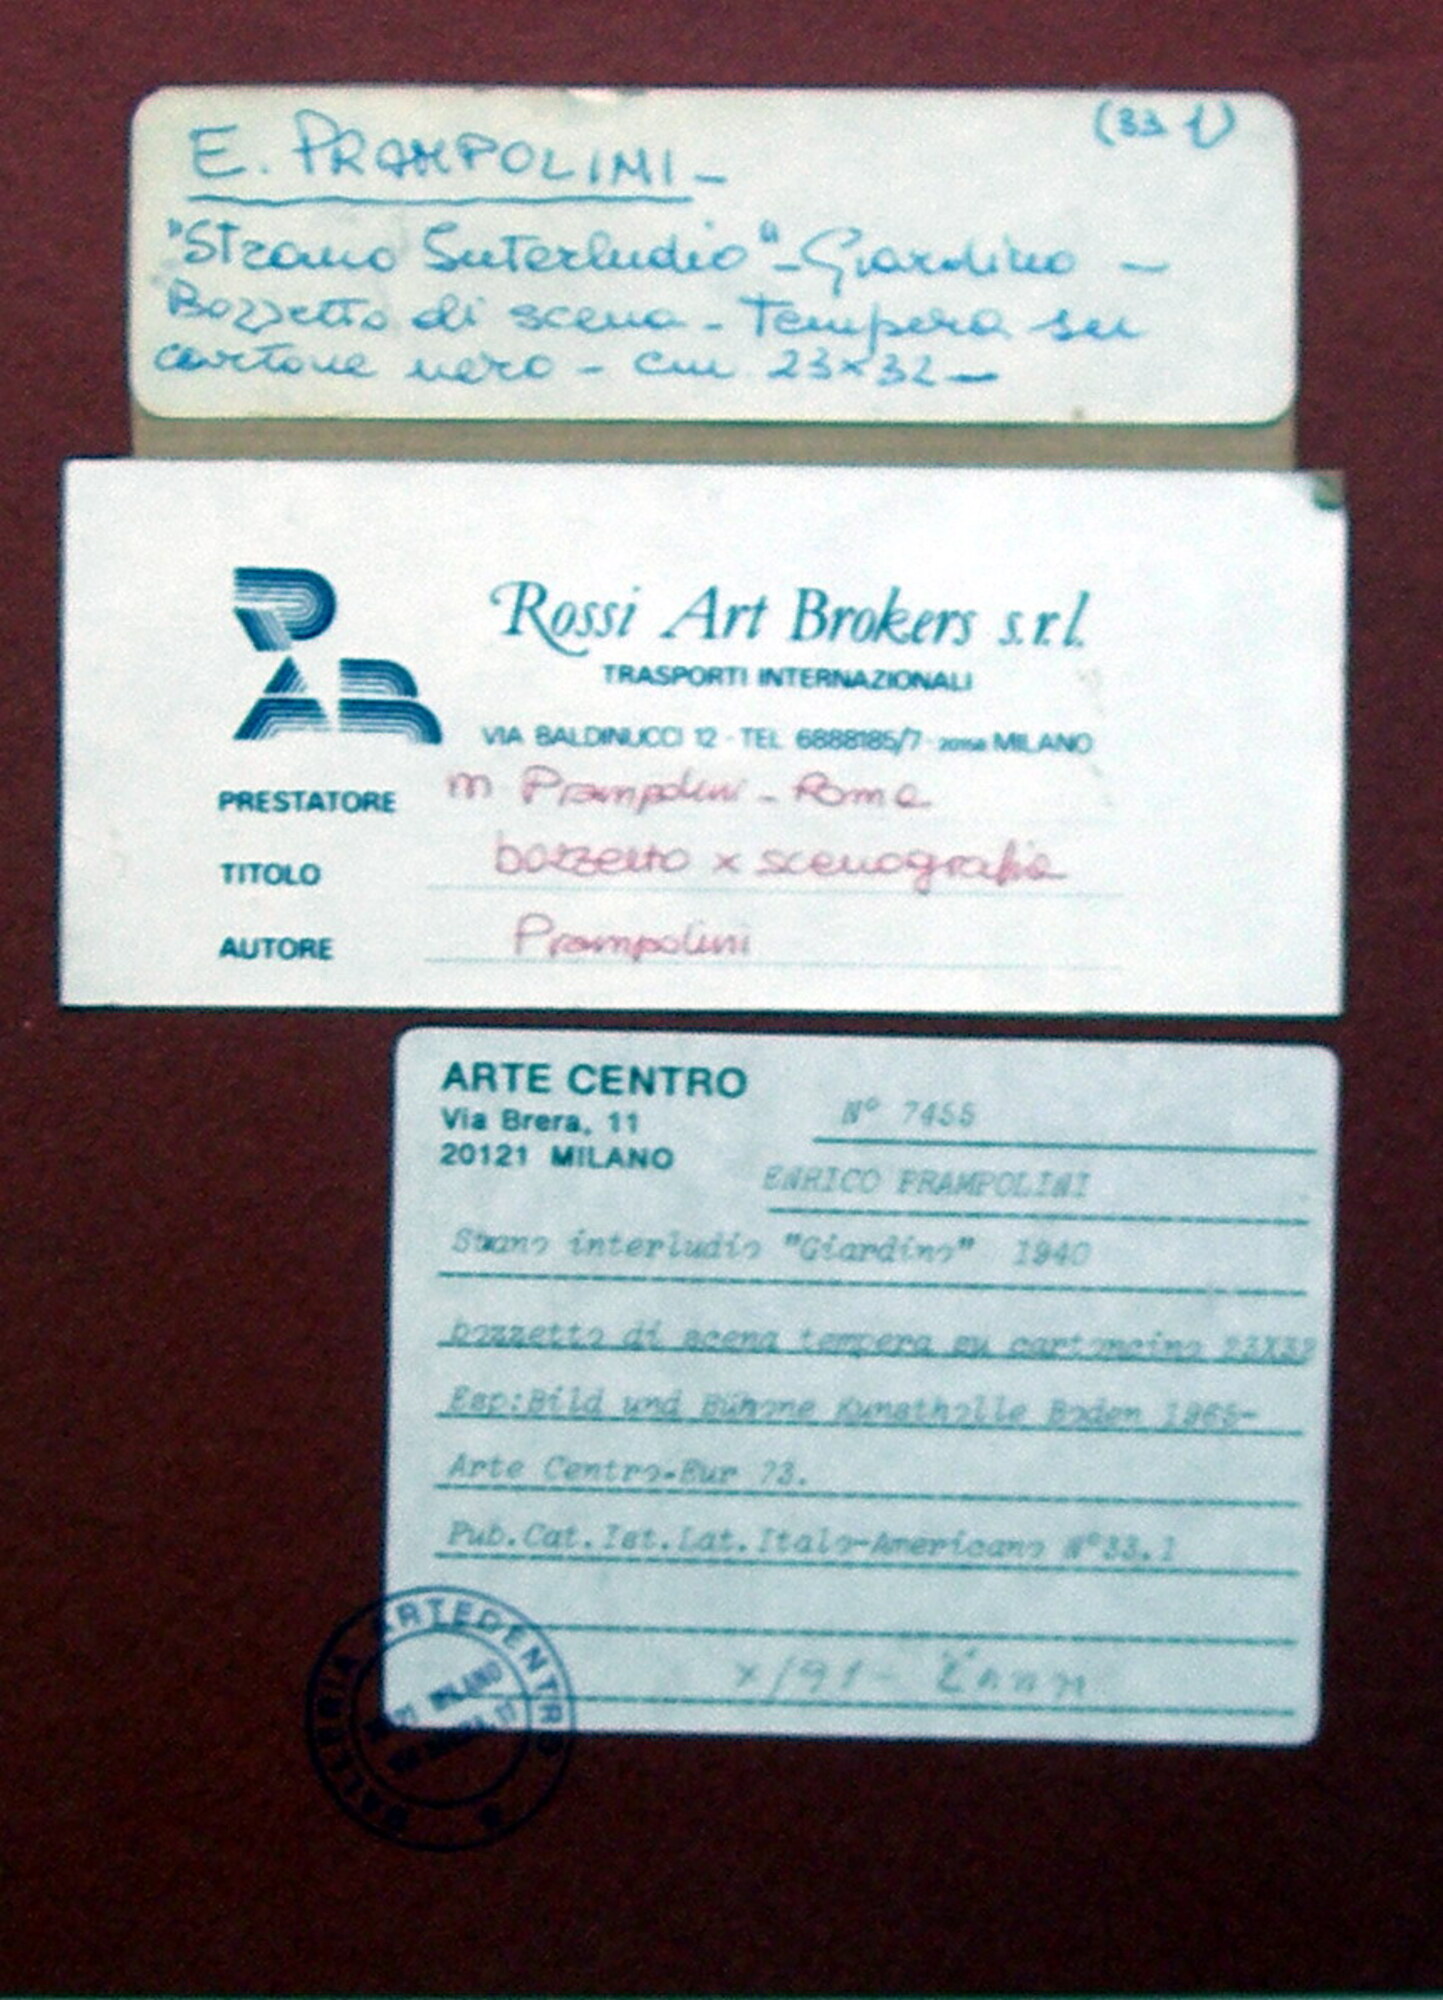 (33 1)
E. PRAMPOLINI -
"Strano Interludio" - Giardino -
Bozzetto di scena - Tempera su
cartone nero - cm 23x32 -
RAB
Rossi Art Brokers s.r.l.
TRASPORTI INTERNAZIONALI
VIA BALDINUCCI 12 - TEL 6888185/7 - 20158 MILANO
PRESTATORE m Prampolini - Roma
TITOLO bozzetto x scenografia
AUTORE Prampolini
ARTE CENTRO
Via Brera, 11
20121 MILANO
N° 7455
ENRICO PRAMPOLINI
interludio "Giardino" 1940
bozzetto di scena tempera su cartoncino 23X32
Esp:Bild und Bühne Kunsthalle Baden 1965-
Arte Centro-Eur 73.
Pub.Cat.Ist.Lat.Italo-Americano N°33.1
x/91-
GALLERIA ARTECENTRO
MILANO